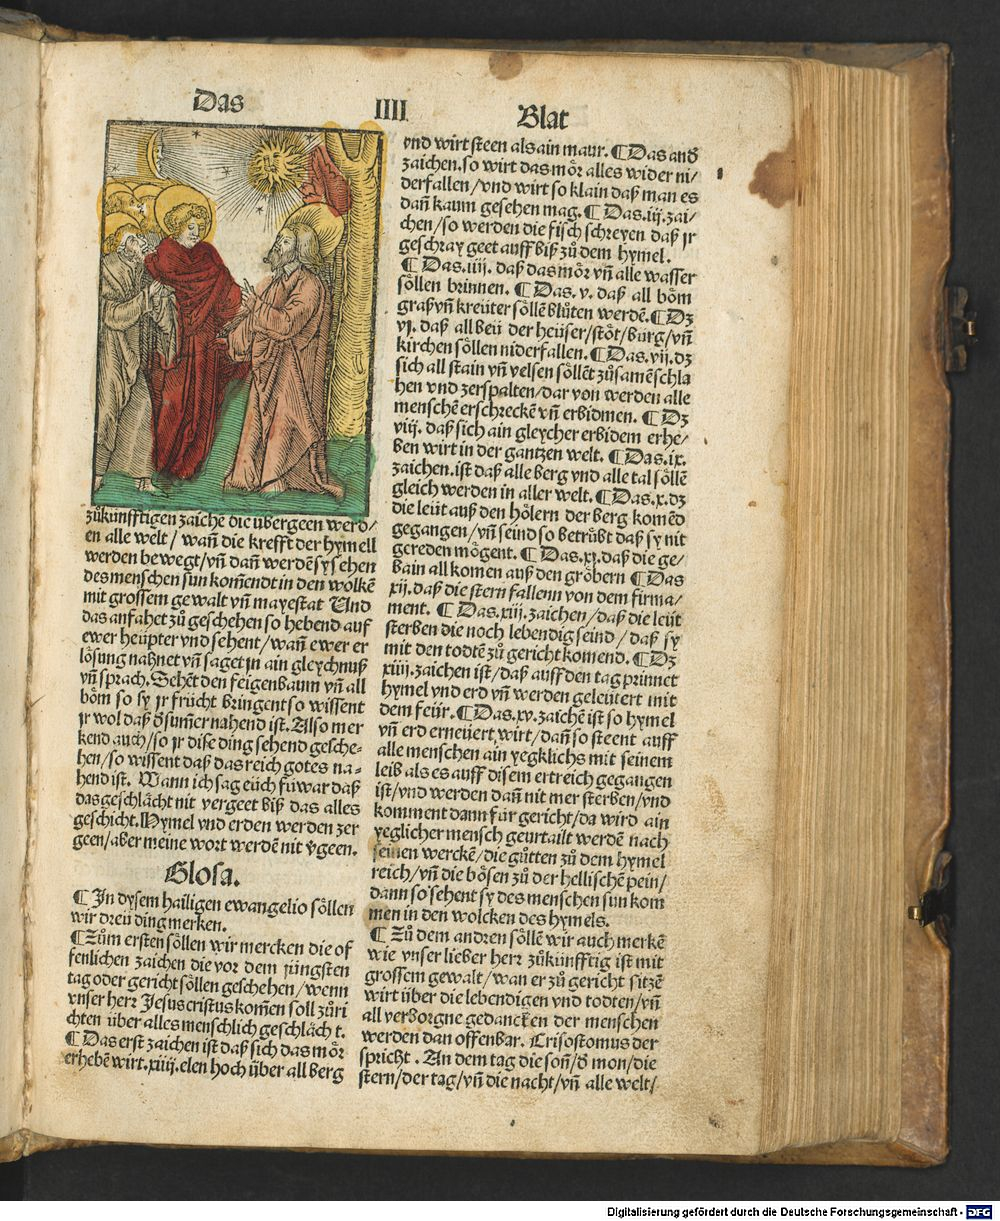 Das IIII Blat
zůkünfftigen zaichē die übergeen werd/
en alle welt / wañ die krefft der hymell
werden bewegt/vñ dañ werdē sy sehen
des menschen sun komendt in den wolkē
mit grossem gewalt vñ mayestat Und
das anfahet zů geschehen so hebend auf
ewer heüpter vnd sehent/wañ ewer er
lösung nahnet vñ saget jn ain gleychnuß
vñ sprach. Sehēt den feigenbaum vñ all
böm so sy jr frücht bringent so wissent
jr wol daß d̕ sum̃er nahend ist. Also mer
kend auch/so jr dise ding sehend gesche⸗
hen/so wissent daß das reich gotes na⸗
hend ist. Wann ich sag eüch fürwar daß
das geschlächt nit vergeet biß das alles
geschicht. Hymel vnd erden werden zer
geen/aber meine wort werdē nit v̕geen.
Glosa.
¶ In dysem hailigen ewangelio söllen
wir dreü ding merken.
¶ Zům ersten söllen wir mercken die of
fenlichen zaichen die vor dem jüngsten
tag oder gericht söllen geschehen/wenn
vnser herr Jesus cristus kom̃en soll zů ri
chten über alles menschlich geschlächt.
¶ Das erst zaichen ist daß sich das mör
erhebē wirt.xiiij.elen hoch über all berg
vnd wirt steen als ain maur. ¶ Das and̕
zaichen. so wirt das mör alles wider ni/
derfallen/vnd wirt so klain daß man es
dañ kaum gesehen mag. ¶ Das.iij.zai/
chen/so werden die fisch schreyen daß jr
geschray geet auff biß zů dem hymel.
¶ Das.iiij. daß das mör vñ alle wasser
söllen brinnen. ¶ Das. v. daß all böm
graß vñ kreüter söllē blůten werdē. ¶ Dz
vj. daß all beü der heüser/stöt/burg/vñ
kirchen söllen niderfallen. ¶ Das.vij.dz
sich all stain vñ velsen söllēt zůsamē schla
hen vnd zerspalten/dar von werden alle
menschē erschreckē vñ erbidmen. ¶ Dz
viij. daß sich ain gleycher erbidem erhe/
ben wirt in der gantzen welt. ¶ Das.ix.
zaichen. ist daß alle berg vnd alle tal söllē
gleich werden in aller welt. ¶ Das.x.dz
die leüt auß den hölern der berg komēd
gegangen/vñ seind so betrübt daß sy nit
gereden mögent. ¶ Das.xj.daß die ge/
bain all komen auß den gröbern ¶ Das
xij. daß die stern fallenn von dem firma/
ment. ¶ Das.xiij. zaichen/daß die leüt
sterben die noch lebendig seind / daß sy
mit den todtē zů gericht komend. ¶ Dz
xiiij.zaichen ist/daß auff den tag prinnet
hymel vnd erd vñ werden geleütert mit
dem feür. ¶ Das.xv.zaichē ist so hymel
vñ erd erneüert wirt/dañ so steent auff
alle menschen ain yegklichs mit seinem
leib als es auff disem ertreich gegangen
ist/vnd werden dañ nit mer sterben/vnd
komment dann für gericht/da wird ain
yeglicher mensch geurtailt werdē nach
seinen werckē/die gůtten zů dem hymel
reich/vñ die bösen zů der hellischē pein/
dann so sehent sy des menschen sun kom
men in den wolcken des hymels.
¶ Zů dem andren söllē wir auch merkē
wie vnser lieber herr zůkünfftig ist mit
grossem gewalt/wan er zů gericht sitzē
wirt über die lebendigen vnd todten/vñ
all verborgne gedancken der menschen
werden dan offenbar. Crisostomus der
spricht . An dem tag die soñ/d̕ mon/die
stern/der tag/vñ die nacht/vñ alle welt/
Digitalisierung gefördert durch die Deutsche Forschungsgemeinschaft - DFG